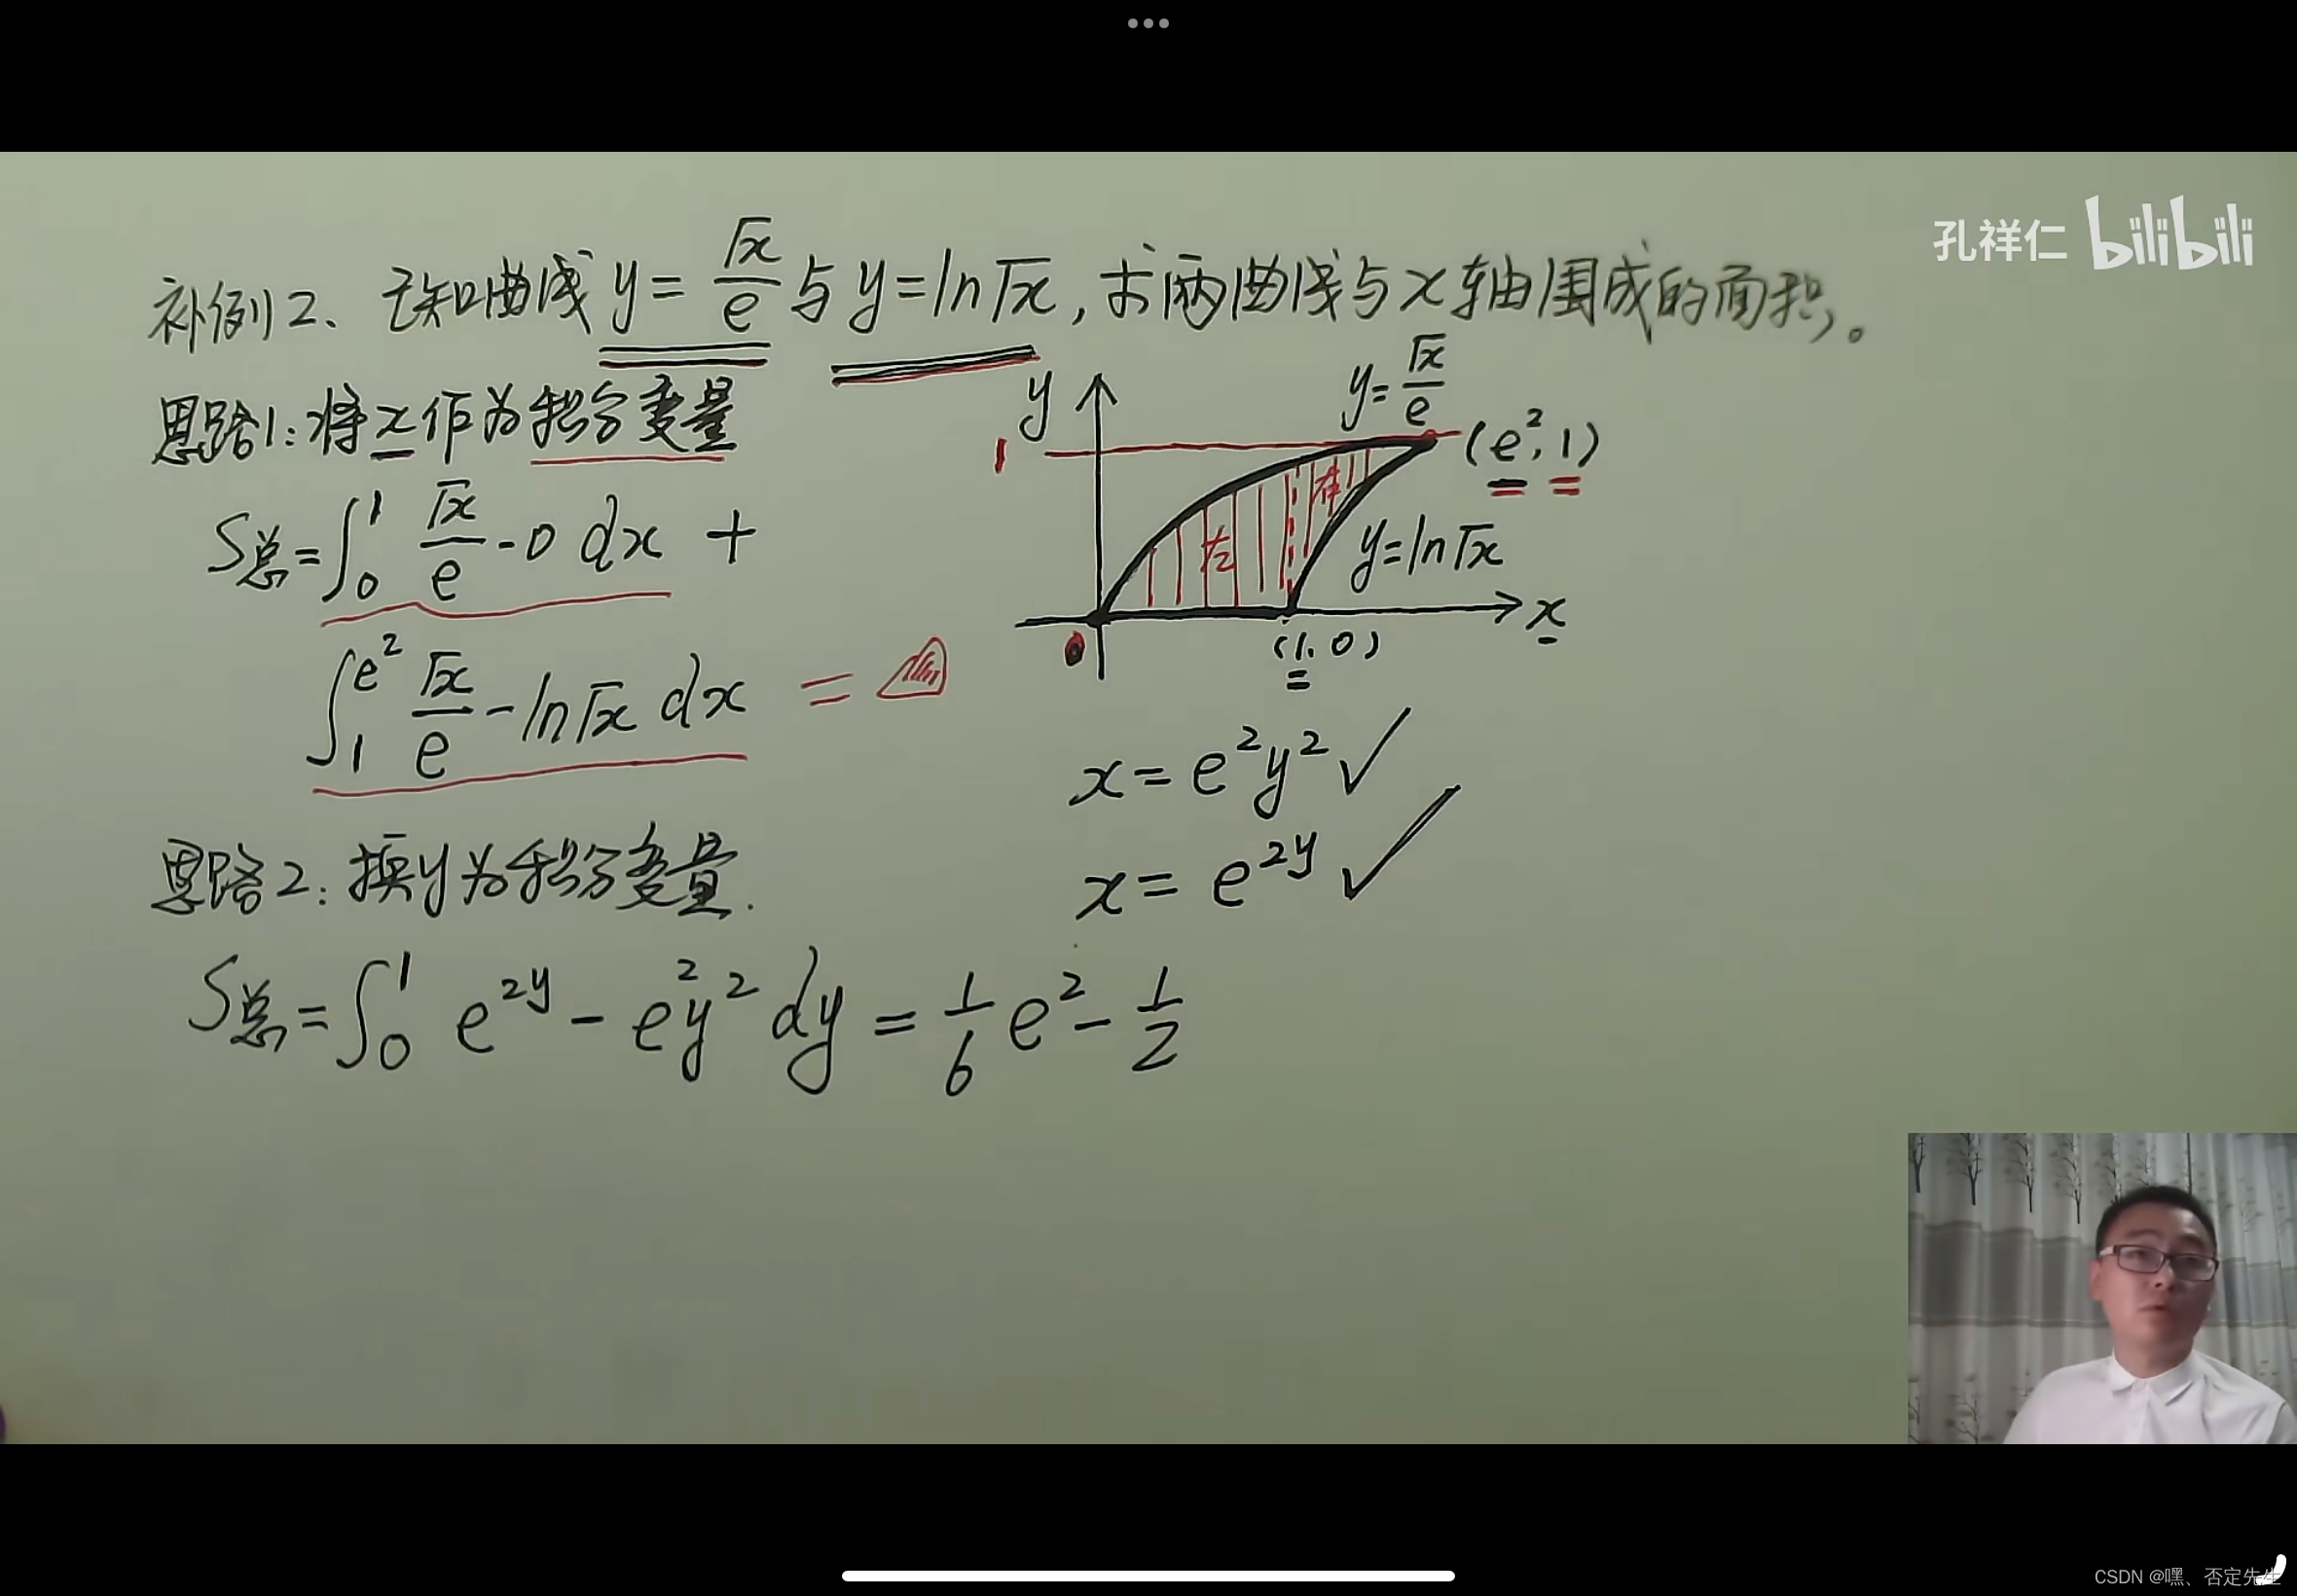 孔祥仁 bilibili
补例2、已知曲线 y = √x/e 与 y = ln√x, 求两曲线与x轴围成的面积。
思路1: 将x作为积分变量
S总 = ∫₀¹ √x/e - 0 dx +
∫₁^e² √x/e - ln√x dx =
y
1
y = √x/e
(e², 1)
左
右
y = ln√x
x
0
(1, 0)
x = e²y² ✓
x = e^2y ✓
思路2: 换y为积分变量.
S总 = ∫₀¹ e^2y - e²y² dy = 1/6 e² - 1/2
CSDN @嘿、否定先生